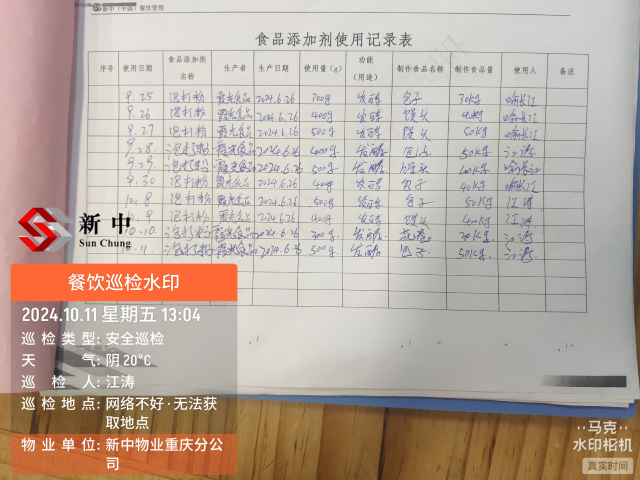 新中（中国）餐饮管理
食品添加剂使用记录表
序号 使用日期 食品添加剂名称 生产者 生产日期 使用量(g) 功能（用途） 制作食品名称 制作食品量 使用人 备注
9.25 泡打粉 霞光食品 2024.6.26 700g 发酵 包子 30kg 喻长江
9.26 泡打粉 霞光食品 2024.6.26 400g 发酵 馒头 喻长江
9.27 泡打粉 霞光食品 2024.6.26 500g 发酵 馒头 50kg 喻长江
9.28 泡打粉 霞光食品 2024.6.26 400g 发酵 包子 50kg 江涛
9.29 泡打粉 霞光食品 2024.6.26 500g 发酵 馒头
9.30 泡打粉 霞光食品 2024.6.26 400g 发酵 包子 40kg 喻长江
10.8 泡打粉 霞光食品 2024.6.26 500g 发酵 包子 50kg 江涛
10.9 泡打粉 霞光食品 2024.6.26 400g 发酵 馒头 40kg 江涛
10.10 泡打粉 霞光食品 2024.6.26 300g 发酵 花卷 江涛
10.11 泡打粉 霞光食品 2024.6.26 500g 发酵 包子 50kg 江涛
新中
Sun Chung
餐饮巡检水印
2024.10.11 星期五 13:04
巡检类型: 安全巡检
天气: 阴 20°C
巡检人: 江涛
巡检地点: 网络不好·无法获
取地点
物业单位: 新中物业重庆分公
司
马克
水印相机
真实时间